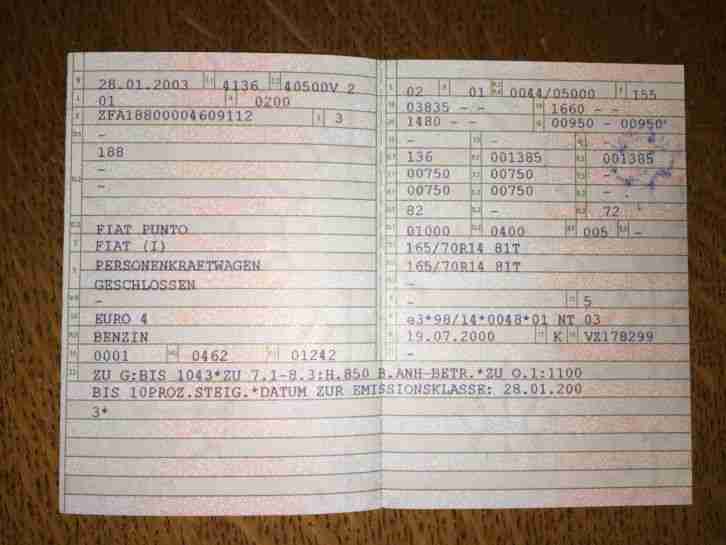 28.01.2003 4136 40500V 2
01 0200
ZFA18800004609112 3
-
188
-
-
FIAT PUNTO
FIAT (I)
PERSONENKRAFTWAGEN
GESCHLOSSEN
-
EURO 4
BENZIN
0001 0462 01242
02 01 0044/05000 155
03835 - - 1660 - -
1480 - - 00950 - 00950
- - -
136 001385 001385
00750 00750 -
00750 00750 -
82 - 72
01000 0400 005 -
165/70R14 81T
165/70R14 81T
-
- 5
e3*98/14*0048*01 NT 03
19.07.2000 K VZ178299
-
ZU G:BIS 1043*ZU 7.1-8.3:H.850 B.ANH-BETR.*ZU O.1:1100
BIS 10PROZ.STEIG.*DATUM ZUR EMISSIONSKLASSE: 28.01.200
3*